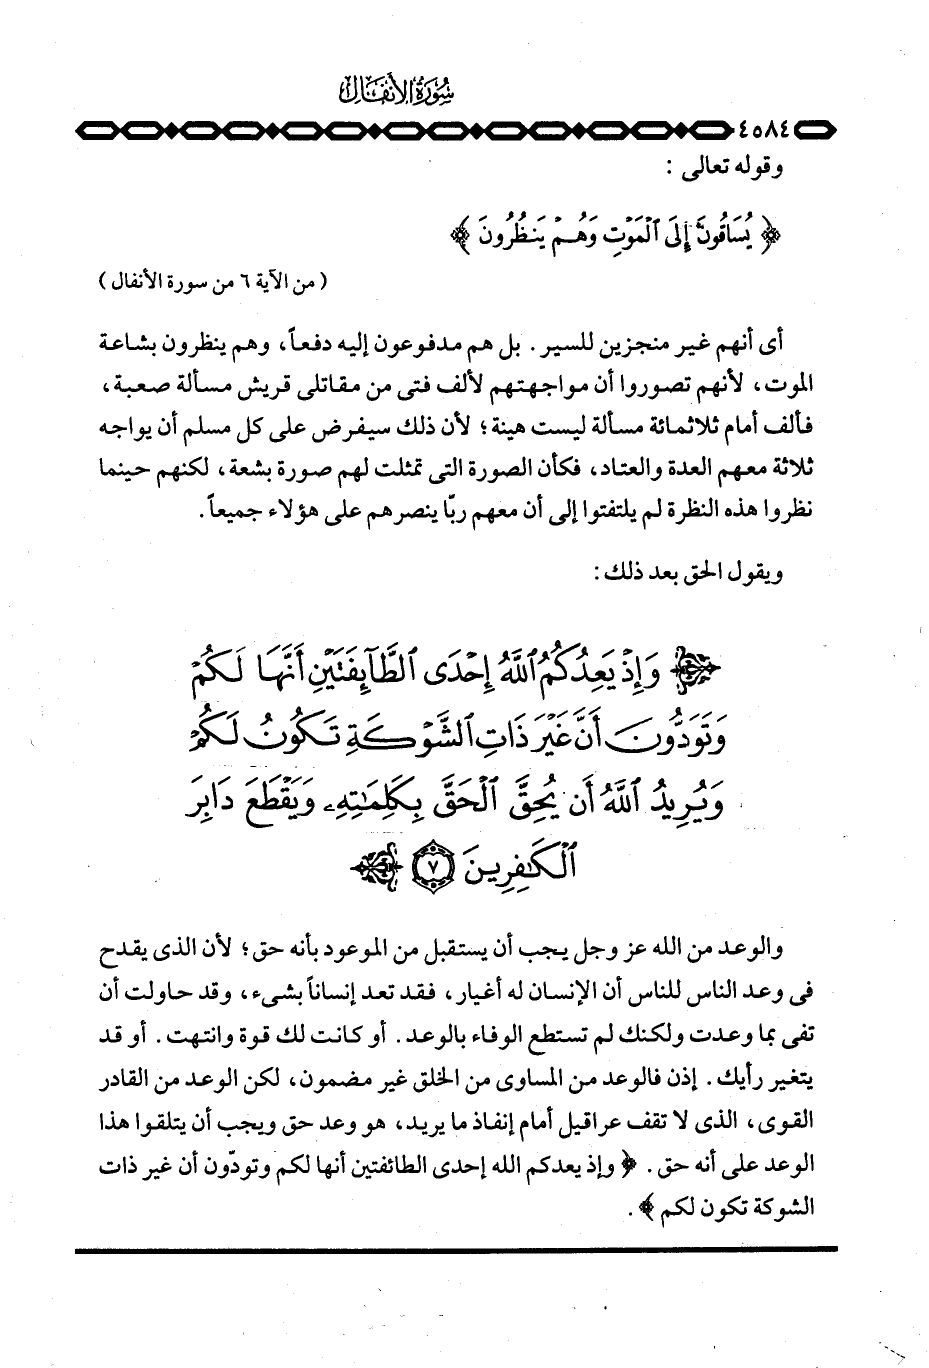 سورة الأنفال
٤٥٨٤
وقوله تعالى :
﴿ يُسَاقُونَ إِلَى ٱلْمَوْتِ وَهُمْ يَنظُرُونَ ﴾
( من الآية ٦ من سورة الأنفال )
أى أنهم غير منجزين للسير . بل هم مدفوعون إليه دفعاً، وهم ينظرون بشاعة
الموت، لأنهم تصوروا أن مواجهتهم لألف فتى من مقاتلى قريش مسألة صعبة،
فألف أمام ثلاثمائة مسألة ليست هينة؛ لأن ذلك سيفرض على كل مسلم أن يواجه
ثلاثة معهم العدة والعتاد، فكأن الصورة التى تمثلت لهم صورة بشعة، لكنهم حينما
نظروا هذه النظرة لم يلتفتوا إلى أن معهم ربّا ينصرهم على هؤلاء جميعاً.
ويقول الحق بعد ذلك :
﴿ وَإِذْ يَعِدُكُمُ ٱللَّهُ إِحْدَى ٱلطَّآئِفَتَيْنِ أَنَّهَا لَكُمْ
وَتَوَدُّونَ أَنَّ غَيْرَ ذَاتِ ٱلشَّوْكَةِ تَكُونُ لَكُمْ
وَيُرِيدُ ٱللَّهُ أَن يُحِقَّ ٱلْحَقَّ بِكَلِمَٰتِهِۦ وَيَقْطَعَ دَابِرَ
ٱلْكَٰفِرِينَ ٧ ﴾
والوعد من الله عز وجل يجب أن يستقبل من الموعود بأنه حق؛ لأن الذى يقدح
فى وعد الناس للناس أن الإنسان له أغيار، فقد تعد إنساناً بشىء، وقد حاولت أن
تفى بما وعدت ولكنك لم تستطع الوفاء بالوعد. أو كانت لك قوة وانتهت. أو قد
يتغير رأيك. إذن فالوعد من المساوى من الخلق غير مضمون، لكن الوعد من القادر
القوى، الذى لا تقف عراقيل أمام إنفاذ ما يريد، هو وعد حق ويجب أن يتلقوا هذا
الوعد على أنه حق . ﴿ وإذ يعدكم الله إحدى الطائفتين أنها لكم وتودّون أن غير ذات
الشوكة تكون لكم ﴾ .